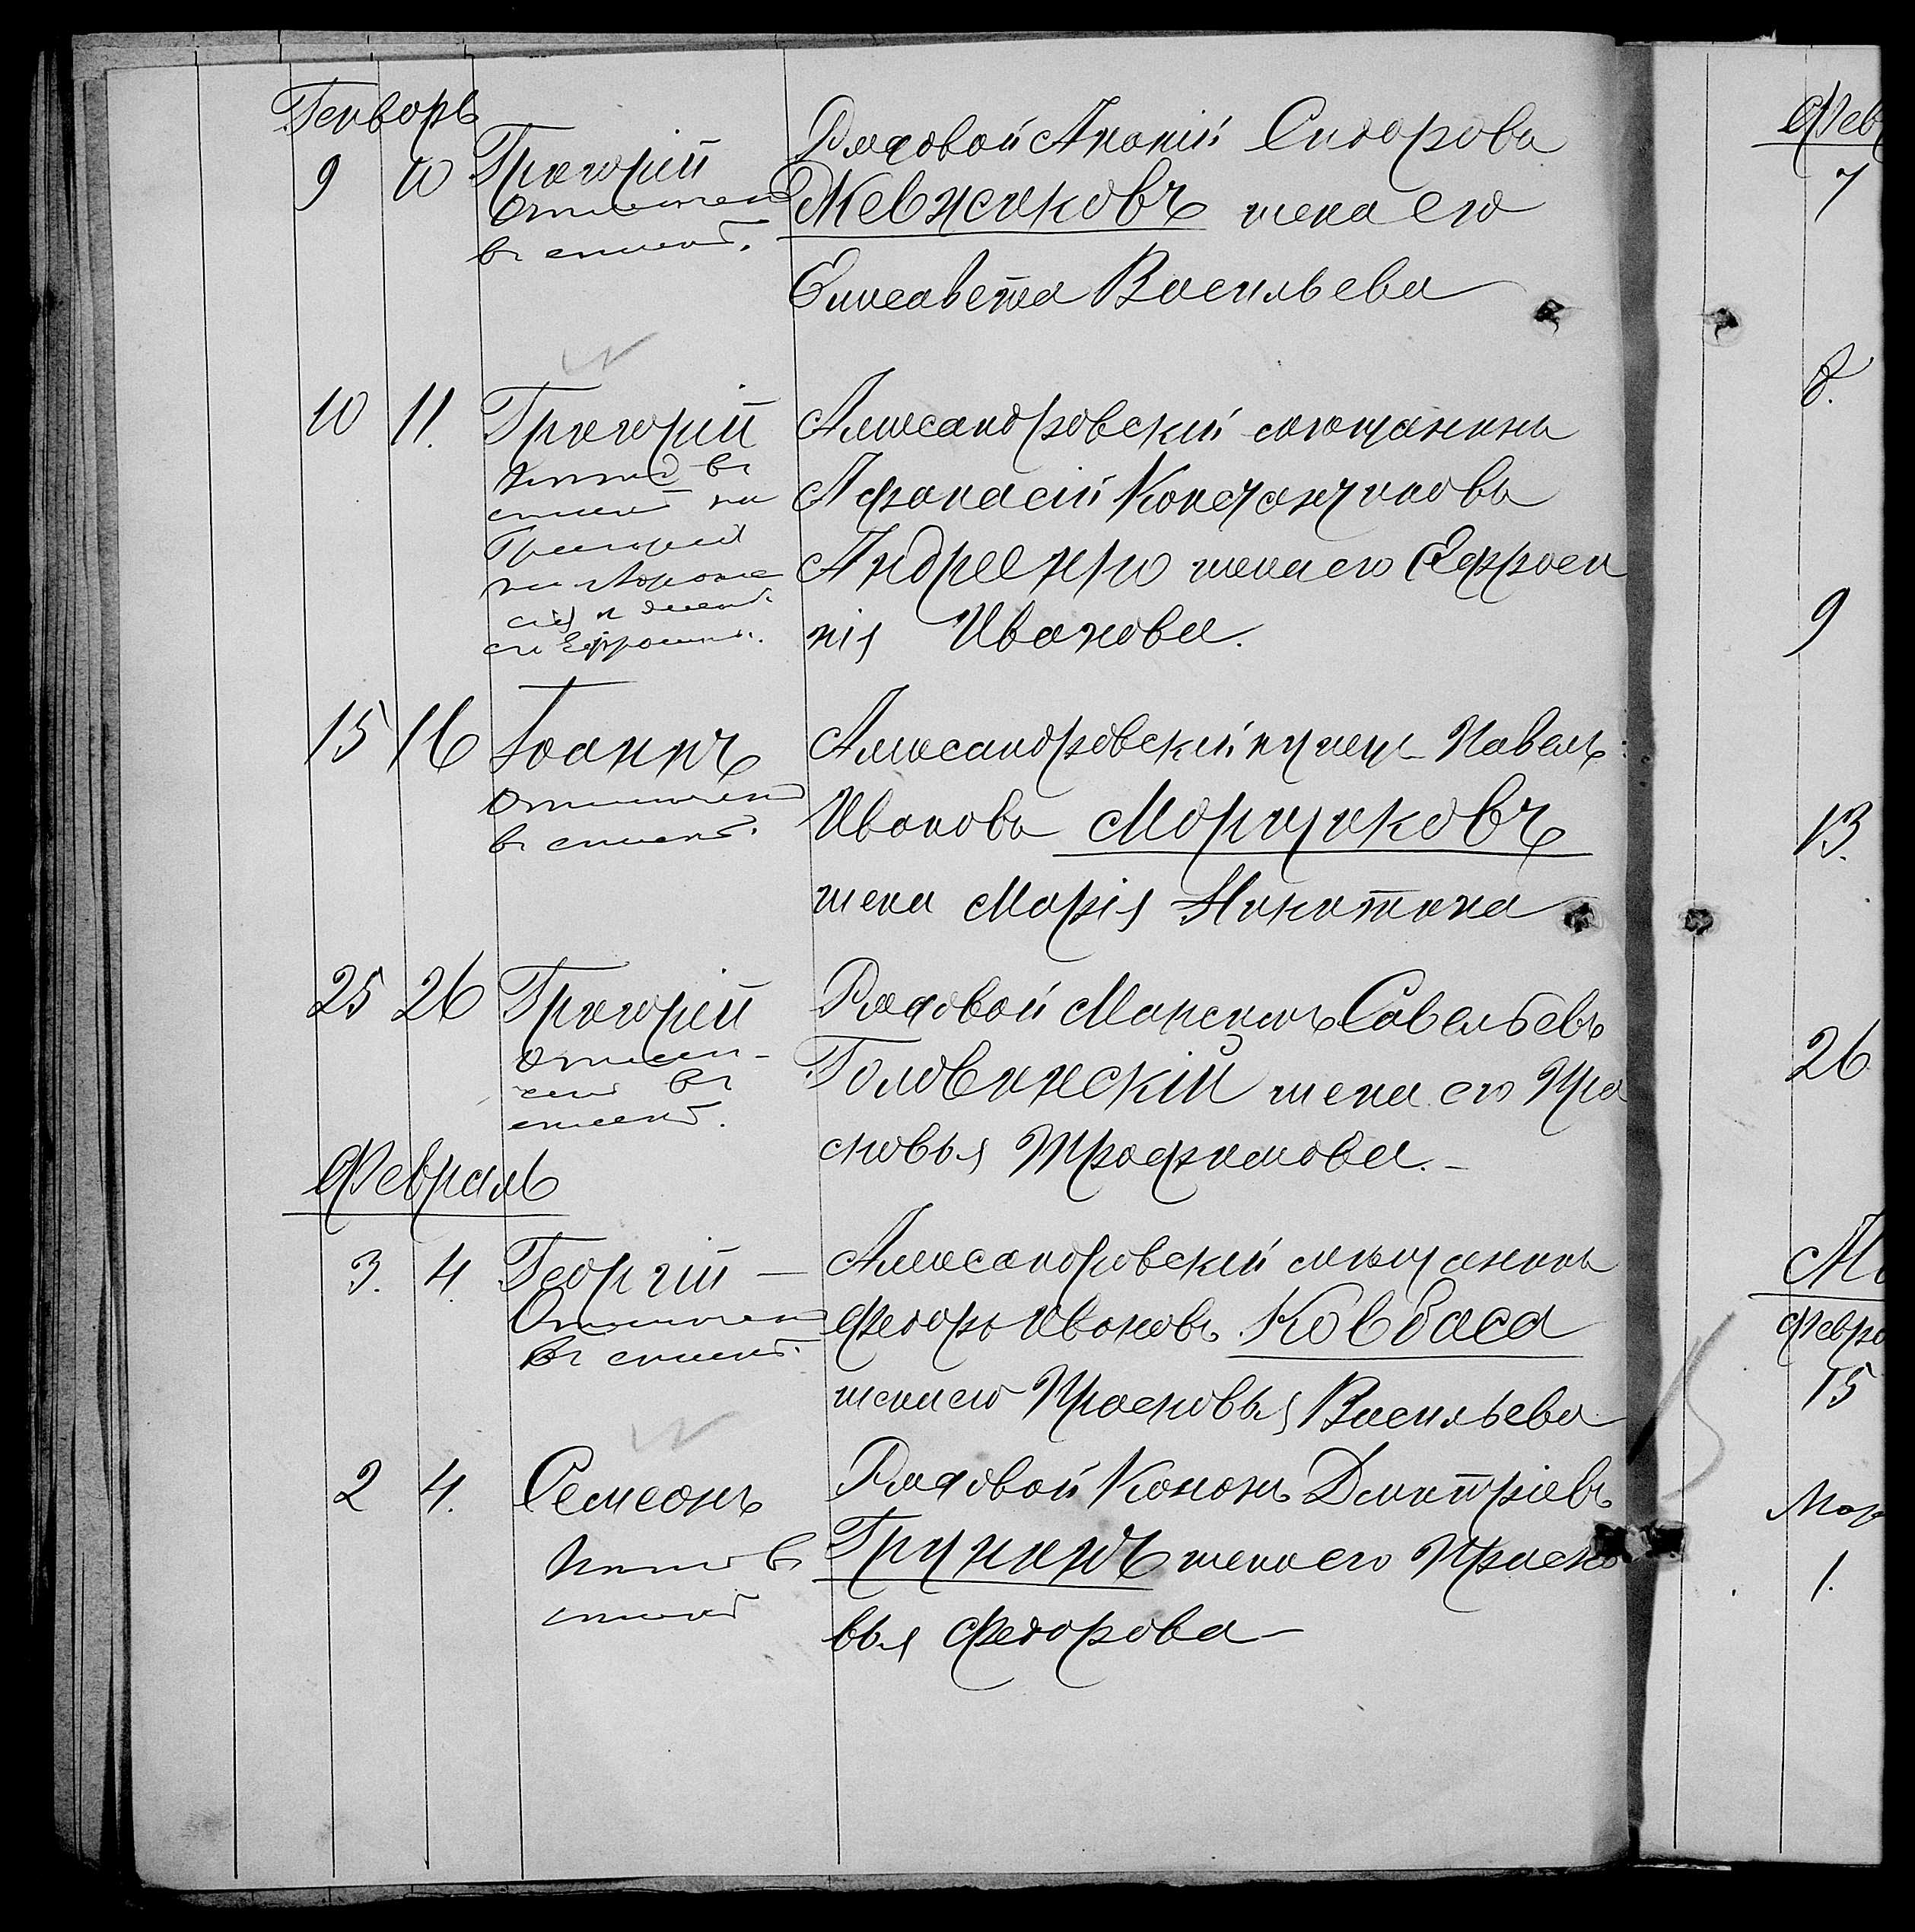 Генварь
9 10 Григорій
Отмечено
в списке.
Рядовой Ананій Сидоровъ
Жевжиковъ жена его
Елисавета Васильева
10 11. Григорій
в
списке на
Григорія
и
Александровскій мѣщанинъ
Афанасій Константиновъ
Андреенко жена его Ефроси
нія Иванова.
15 16 Іоаннъ
Отмечено
в списке.
Александровскій купецъ Павелъ
Ивановъ Морщиковъ
жена Марія Никитина
25 26 Григорій
Отмеч-
ено в
списке.
Рядовой Максимъ Савельевъ
Головинскій жена его Пра
сковья Трофимова.
Февраль
3. 4. Георгій
Отмечено
в списке.
Александровскій мѣщанинъ
Федоръ Ивановъ Ковбаса
жена его Прасковья Васильева
2 4. Семеонъ
в
списке
Рядовой Кононъ Дмитріевъ
жена его Праско
вья Федорова
Фев
7
8.
9
13.
26
М
Февра
15
Мар
1.